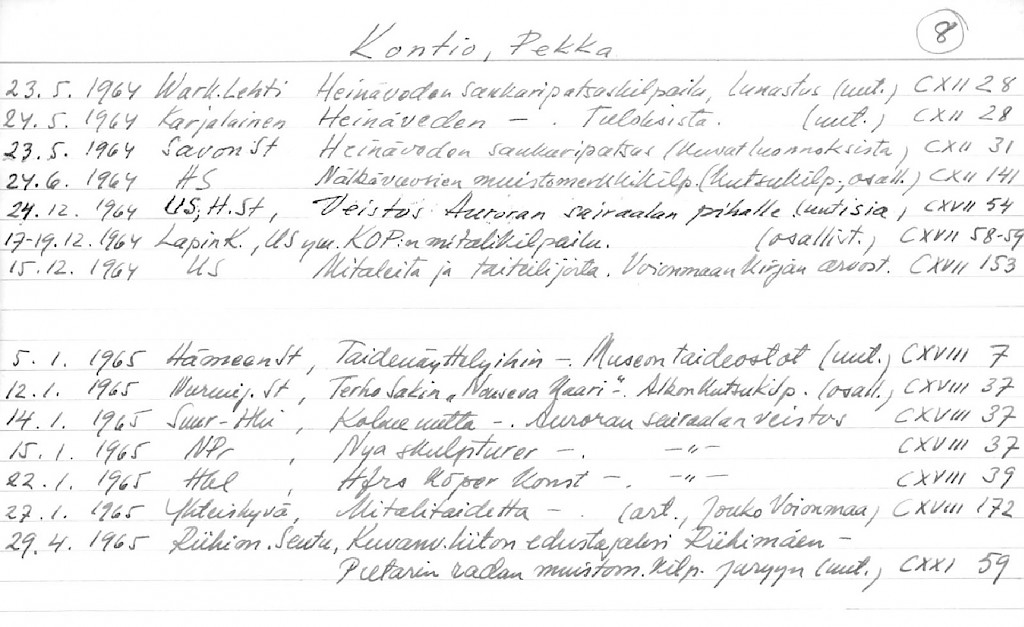 8
Kontio, Pekka
23.5. 1964 Wark.Lehti Heinäveden sankaripatsaskilpailu, lunastus (uut.) CXII 28
24.5. 1964 Karjalainen Heinäveden — . Tuloksista. (uut.) CXII 28
23.5. 1964 SavonSt Heinäveden sankaripatsas (kuvat luonnoksista) CXII 31
24.6. 1964 HS Nälkävuosien muistomerkkikilp. (kutsukilp., osall.) CXII 141
24.12. 1964 US, H.St, Veistos Auroran sairaalan pihalle (uutisia) CXVII 54
17-19.12.1964 LapinK., US ym. KOP:n mitalikilpailu. (osallist.) CXVII 58-59
15.12. 1964 US Mitaleita ja taiteilijoita. Voionmaan kirjan arvost. CXVII 153
5.1. 1965 HämeenSt, Taidenäyttelyihin — . Museon taideostot (uut.) CXVIII 7
12.1. 1965 Nurmij. St, Terho Sakin „Nouseva Kaari". Alkon kutsukilp. (osall.) CXVIII 37
14.1. 1965 Suur-Hki, Kolme uutta — . Auroran sairaalan veistos CXVIII 37
15.1. 1965 NPr, Nya skulpturer — . —"— CXVIII 37
22.1. 1965 Hbl, Hfrs köper konst — . —"— CXVIII 39
27.1. 1965 Yhteishyvä, Mitalitaidetta — . (art., Jouko Voionmaa) CXVIII 172
29.4. 1965 Riihim. Seutu, Kuvanv.liiton edustajaksi Riihimäen —
Pietarin radan muistom.kilp. juryyn (uut.) CXXI 59